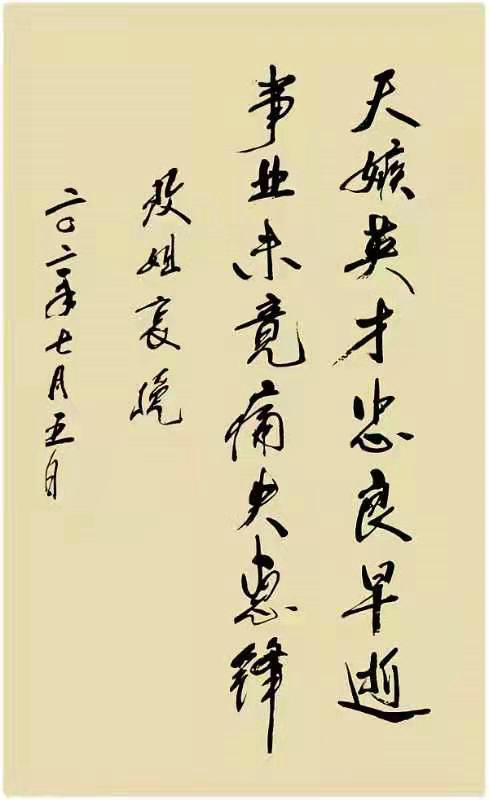 天嫉英才忠良早逝
事业未竟痛失惠锋
姐哀挽
二〇二一年七月五日